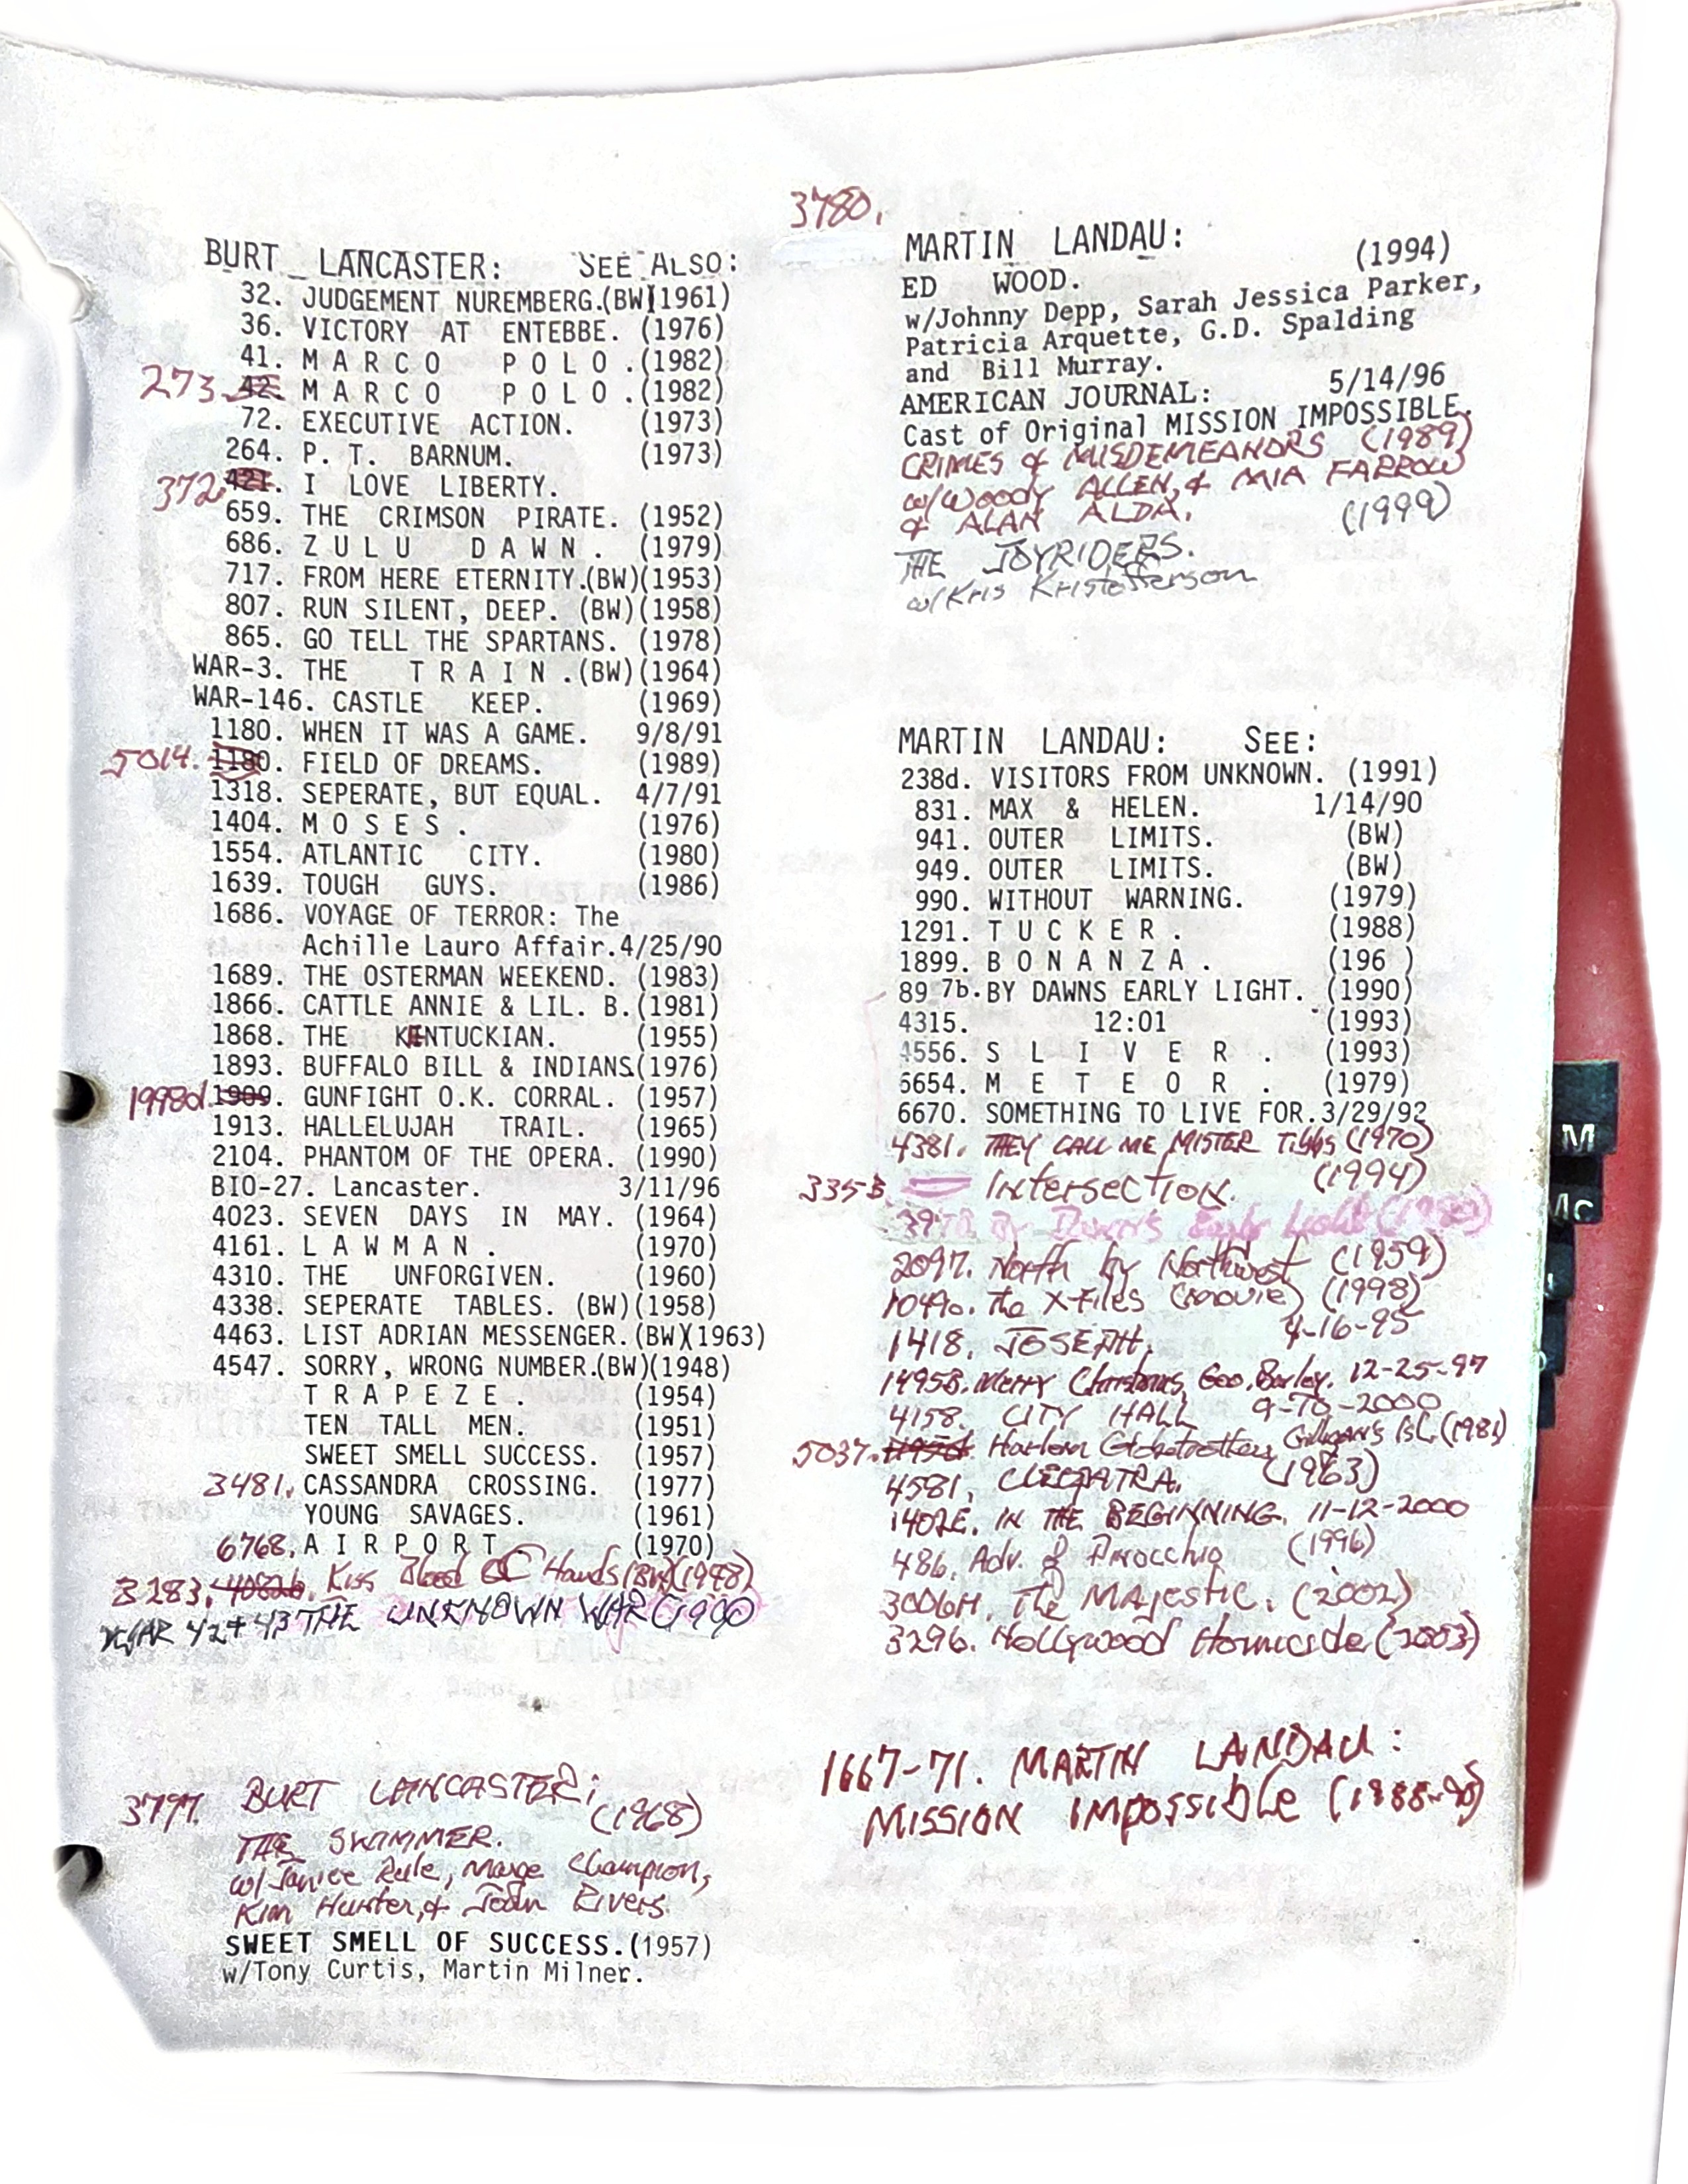 BURT LANCASTER: SEE ALSO:
32. JUDGEMENT NUREMBERG.(BW)(1961)
36. VICTORY AT ENTEBBE. (1976)
41. M A R C O P O L O .(1982)
273. 42. M A R C O P O L O .(1982)
72. EXECUTIVE ACTION. (1973)
264. P. T. BARNUM. (1973)
372 421. I LOVE LIBERTY.
659. THE CRIMSON PIRATE. (1952)
686. Z U L U D A W N . (1979)
717. FROM HERE ETERNITY.(BW)(1953)
807. RUN SILENT, DEEP. (BW)(1958)
865. GO TELL THE SPARTANS. (1978)
WAR-3. THE T R A I N .(BW)(1964)
WAR-146. CASTLE KEEP. (1969)
1180. WHEN IT WAS A GAME. 9/8/91
5014. 1180. FIELD OF DREAMS. (1989)
1318. SEPERATE, BUT EQUAL. 4/7/91
1404. M O S E S . (1976)
1554. ATLANTIC CITY. (1980)
1639. TOUGH GUYS. (1986)
1686. VOYAGE OF TERROR: The
Achille Lauro Affair.4/25/90
1689. THE OSTERMAN WEEKEND. (1983)
1866. CATTLE ANNIE & LIL. B.(1981)
1868. THE KENTUCKIAN. (1955)
1893. BUFFALO BILL & INDIANS(1976)
1998d. 1909. GUNFIGHT O.K. CORRAL. (1957)
1913. HALLELUJAH TRAIL. (1965)
2104. PHANTOM OF THE OPERA. (1990)
BIO-27. Lancaster. 3/11/96
4023. SEVEN DAYS IN MAY. (1964)
4161. L A W M A N . (1970)
4310. THE UNFORGIVEN. (1960)
4338. SEPERATE TABLES. (BW)(1958)
4463. LIST ADRIAN MESSENGER.(BW)(1963)
4547. SORRY, WRONG NUMBER.(BW)(1948)
T R A P E Z E . (1954)
TEN TALL MEN. (1951)
SWEET SMELL SUCCESS. (1957)
3481. CASSANDRA CROSSING. (1977)
YOUNG SAVAGES. (1961)
6768. A I R P O R T . (1970)
3283. 4082b. Kiss Blood Off Hands(BW)(1948)
WAR 42+43 THE UNKNOWN WAR (1990
3797. BURT LANCASTER:
(1968)
THE SWIMMER.
w/Janice Rule, Marge Champion,
Kim Hunter,& Joan Rivers
SWEET SMELL OF SUCCESS.(1957)
w/Tony Curtis, Martin Milner.
3780.
MARTIN LANDAU:
ED WOOD. (1994)
w/Johnny Depp, Sarah Jessica Parker,
Patricia Arquette, G.D. Spalding
and Bill Murray.
AMERICAN JOURNAL: 5/14/96
Cast of Original MISSION IMPOSSIBLE.
CRIMES & MISDEMEANORS (1989)
w/Woody ALLEN,& MIA FARROW
& ALAN ALDA.
THE JOYRIDERS. (1999)
w/Kris Kristofferson
MARTIN LANDAU: SEE:
238d. VISITORS FROM UNKNOWN. (1991)
831. MAX & HELEN. 1/14/90
941. OUTER LIMITS. (BW)
949. OUTER LIMITS. (BW)
990. WITHOUT WARNING. (1979)
1291. T U C K E R . (1988)
1899. B O N A N Z A . (196 )
89 7b.BY DAWNS EARLY LIGHT. (1990)
4315. 12:01 (1993)
4556. S L I V E R . (1993)
6654. M E T E O R . (1979)
6670. SOMETHING TO LIVE FOR.3/29/92
4381. THEY CALL ME MISTER TIBBS (1970)
3353. Intersection. (1994)
3970 By Dawn's Early Light
2097. North by Northwest (1959)
1049a. The X-Files (movie) (1998)
1418. JOSEPH. 4-16-95
1495B. Merry Christmas, Geo. Bailey. 12-25-97
4158. CITY HALL
5037. Harlem Globetrotters, Gilligan's Isl. (1981)
4581. CLEOPATRA. (1963)
1402E. IN THE BEGINNING. 11-12-2000
486. Adv. of Pinocchio (1996)
3006H. The MAJESTIC. (2002)
3296. Hollywood Homicide (2003)
1667-71. MARTIN LANDAU:
MISSION IMPOSSIBLE (1988-90)
M
Mc